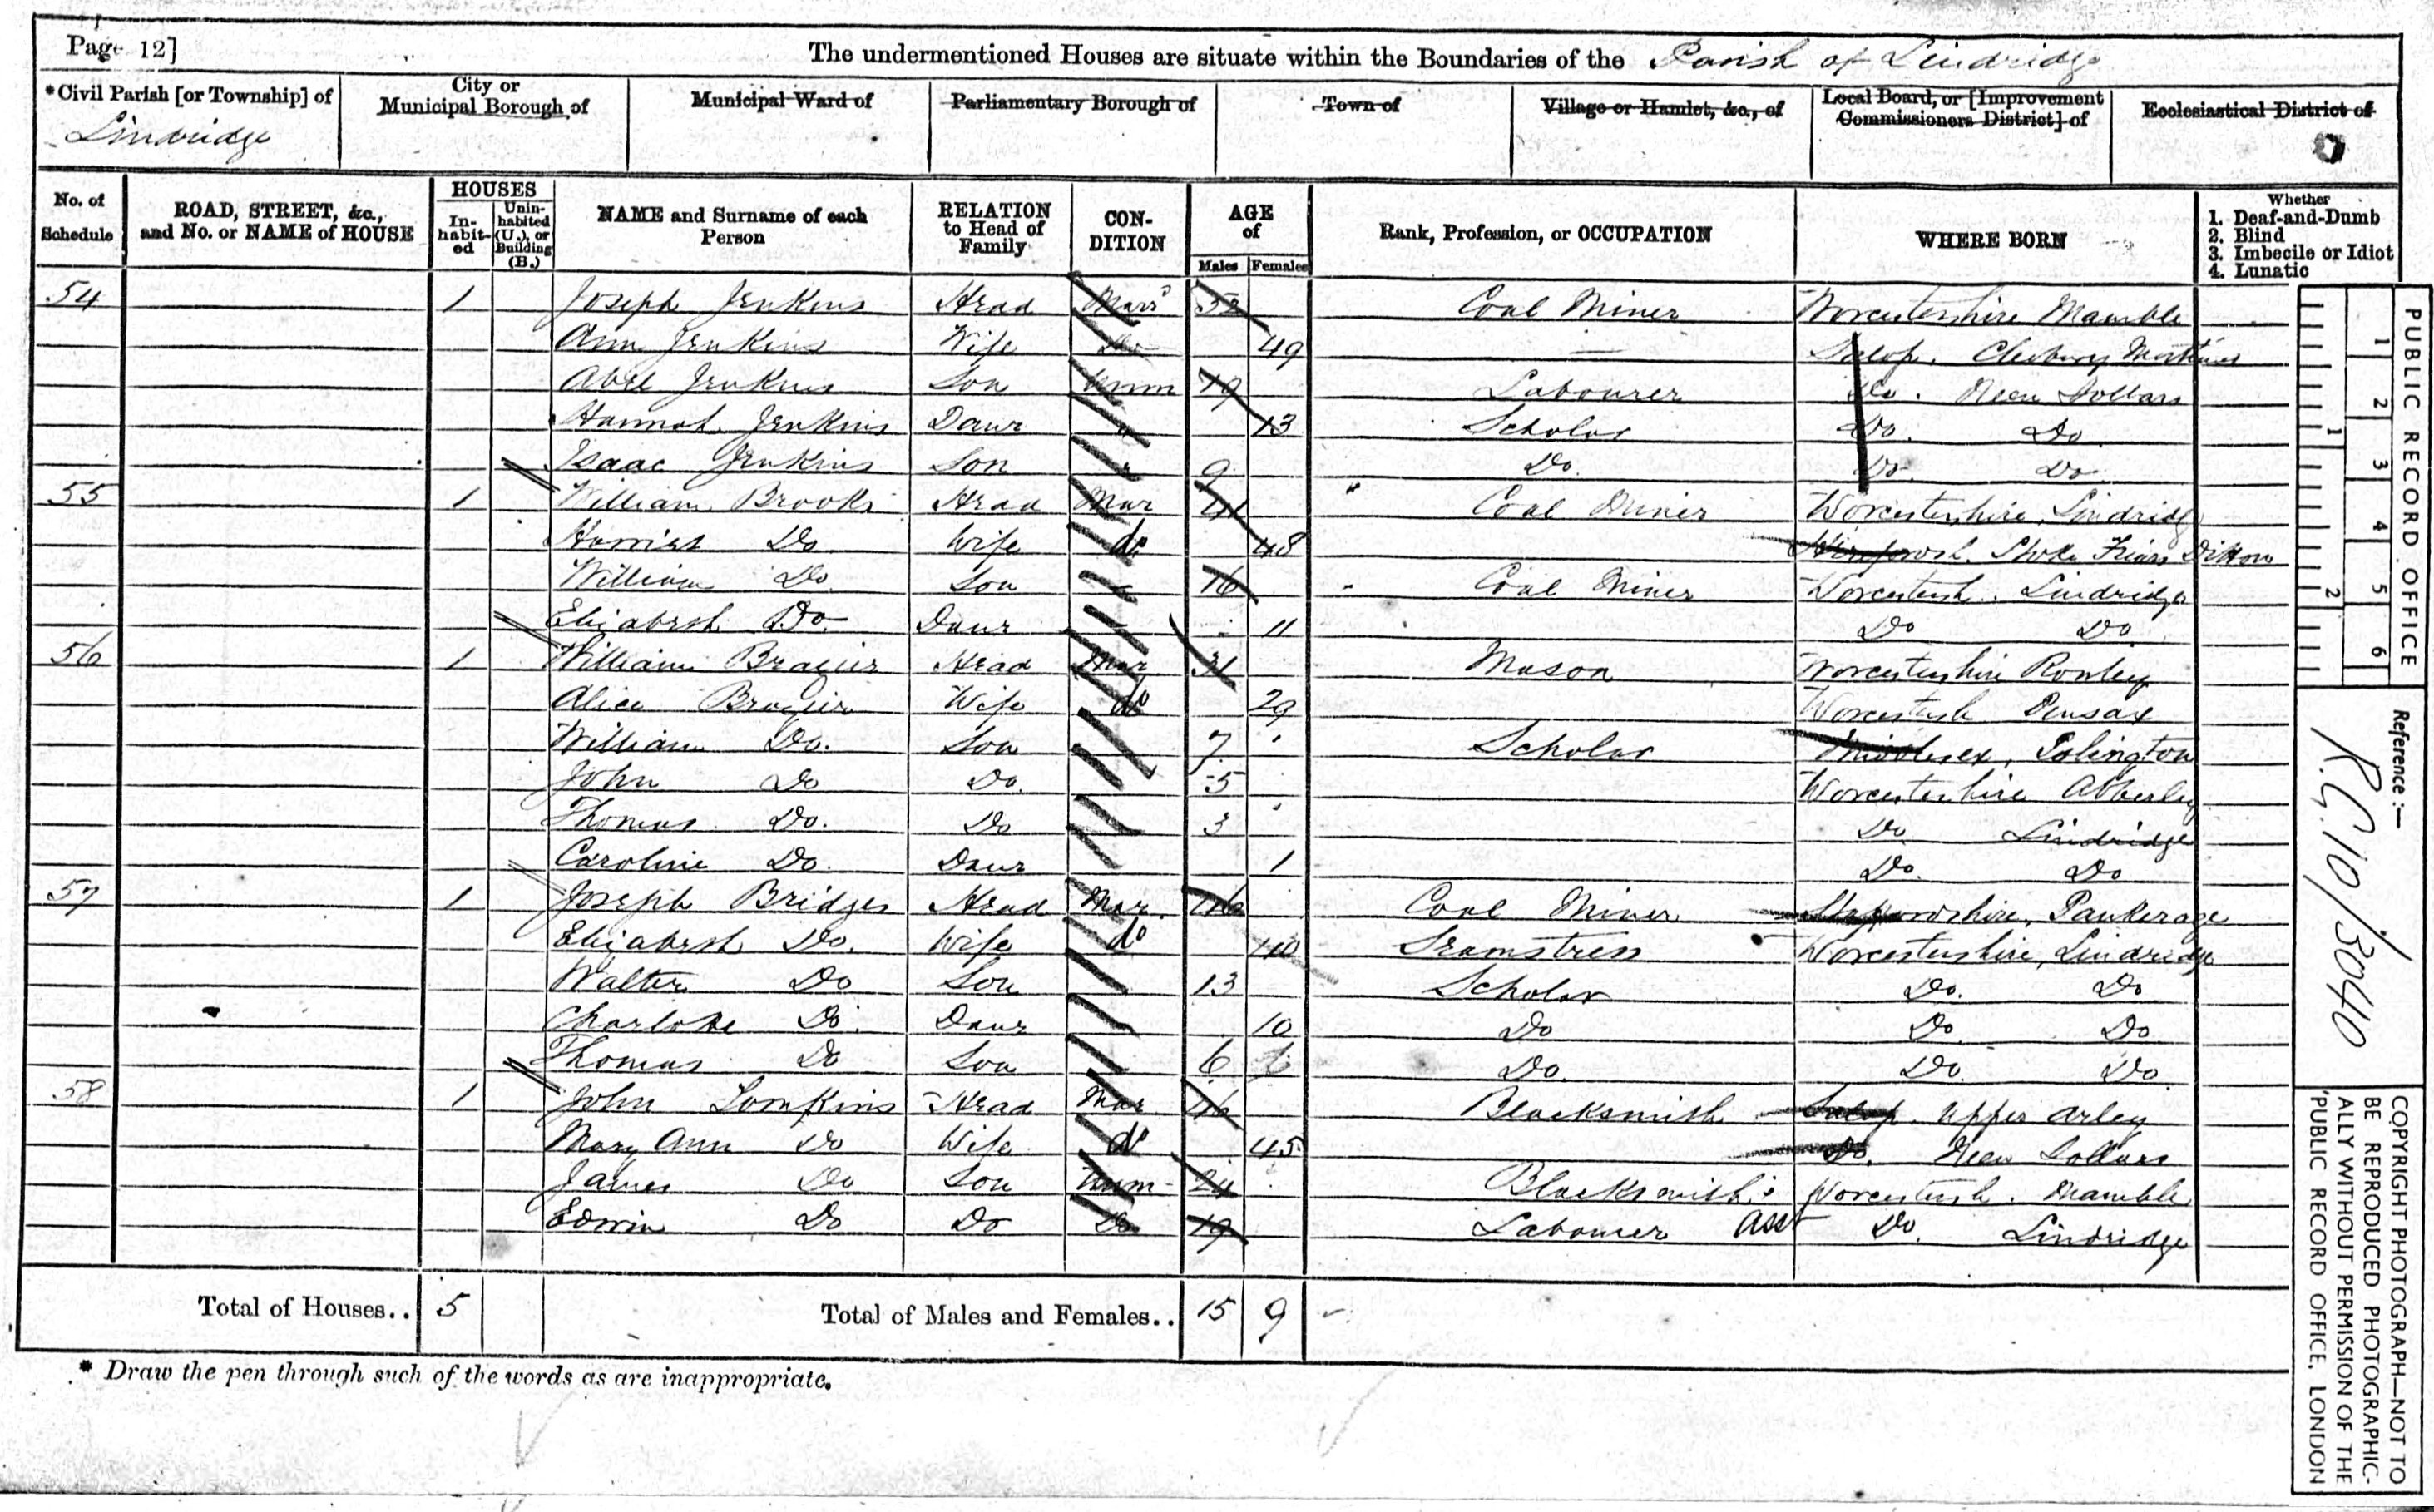 Page 12]
The undermentioned Houses are situate within the Boundaries of the Parish of Lindridge
*Civil Parish [or Township] of
City or Municipal Borough of
Municipal Ward of
Parliamentary Borough of
Town of
Village or Hamlet, &c., of
Local Board, or [Improvement Commissioners District] of
Ecclesiastical District of
Lindridge
No. of Schedule
ROAD, STREET, &c., and No. or NAME of HOUSE
HOUSES
In-habit-ed
Unin-habited (U.), or Building (B.)
NAME and Surname of each Person
RELATION to Head of Family
CON-DITION
AGE of
Males
Females
Rank, Profession, or OCCUPATION
WHERE BORN
Whether
1. Deaf-and-Dumb
2. Blind
3. Imbecile or Idiot
4. Lunatic
54 1 Joseph Jenkins Head Marr 52 Coal Miner Worcestershire Mamble
Ann Jenkins Wife Do 49 Salop. Cleobury Mortimer
Abel Jenkins Son Unm 19 Labourer Do. Neen Dollars
Hannah Jenkins Daur 13 Scholar Do. Do
Isaac Jenkins Son 9 Do. Do. Do
55 1 William Brooks Head Mar 41 Coal Miner Worcestershire, Lindridge
Harriet Do Wife do 48 Stoke Friars Ditton
William Do Son 16 Coal Miner Worcestersh. Lindridge
Elizabeth Do Daur 11 Do Do
56 1 William Brazier Head Mar 31 Mason Worcestershire Rowley
Alice Brazier Wife do 29 Worcestersh Pensax
William Do. Son 7 Scholar Middlesex, Islington
John Do Do. 5 Worcestershire Abberley
Thomas Do. Do 3 Do Lindridge
Caroline Do. Daur 1 Do. Do
57 1 Joseph Bridges Head Mar. 46 Coal Miner Staffordshire, Pankerage
Elizabeth Do. Wife do 40 Seamstress Worcestershire, Lindridge
Walter Do Son 13 Scholar Do. Do
Charlotte Do. Daur 10 Do Do. Do
Thomas Do Son 6 Do. Do. Do
58 1 John Tomkins Head Mar 46 Blacksmith Salop. Upper Arley
Mary Ann Do Wife do 45 Do. Neen Dollars
James Do Son Unm 24 Blacksmith's Asst Worcestersh. Mamble
Edwin Do Do Do 19 Labourer Do. Lindridge
Total of Houses.. 5 Total of Males and Females.. 15 9
* Draw the pen through such of the words as are inappropriate.
PUBLIC RECORD OFFICE
1 2 3 4 5 6
1 2
Reference :—
R.G. 10/3040
COPYRIGHT PHOTOGRAPH—NOT TO
BE REPRODUCED PHOTOGRAPHIC-
ALLY WITHOUT PERMISSION OF THE
PUBLIC RECORD OFFICE, LONDON